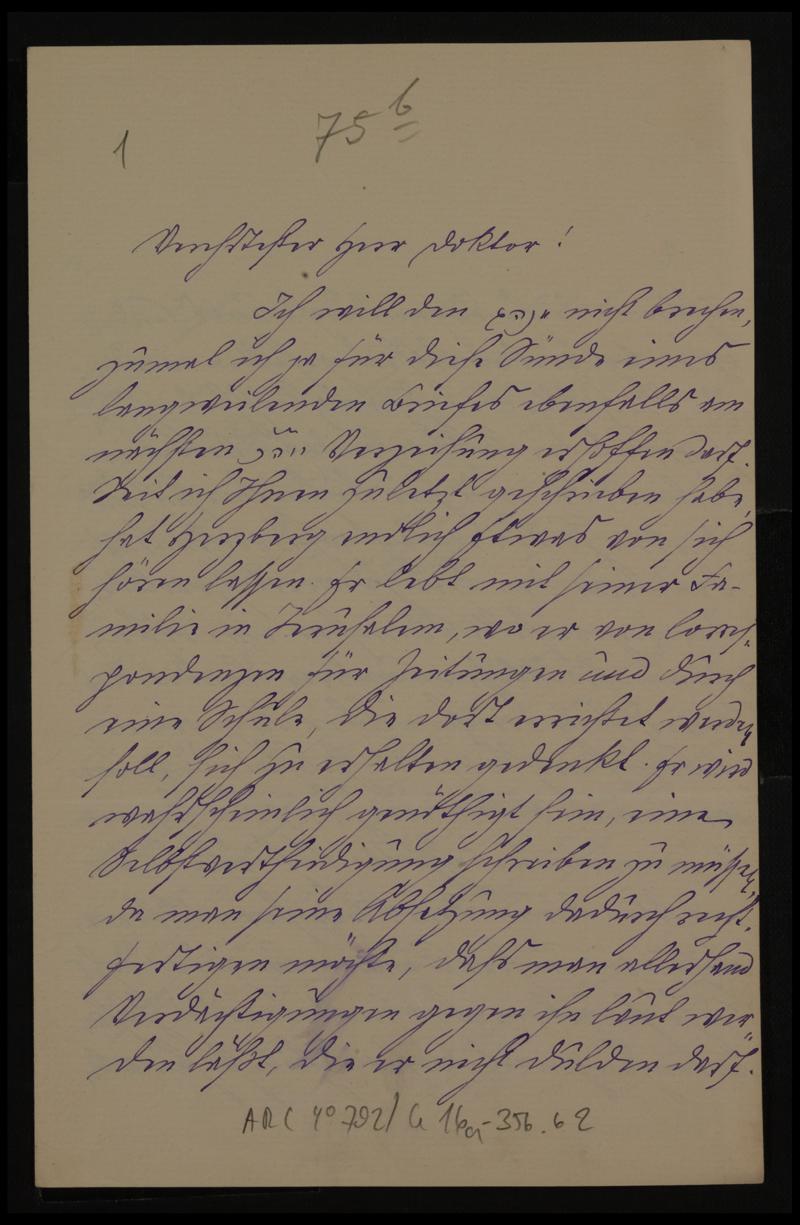 75 b
1
Verehrtester Herr Doktor!
Ich will den מנהג nicht brechen,
zumal ich ja für diese Sünde eines
langweilenden Briefes ebenfalls am
nächsten Verzeihung erhoffen darf.
Seit ich Ihnen zuletzt geschrieben habe,
hat Herzberg endlich Etwas von sich
hören lassen. Er lebt mit seiner Fa-
milie in Jerusalem, wo er von Corres-
pondenzen für Zeitungen und durch
eine Schule, die dort errichtet werden
soll, sich zu erhalten gedenkt. Er wird
wahrscheinlich genöthigt sein, eine
Selbstvertheidigung schreiben zu müssen,
da man seine Absetzung dadurch recht-
fertigen möchte, dass man allerhand
Verdächtigungen gegen ihn laut wer-
den läßt, die er nicht dulden darf.
ARC 4° 792/ G 16a-356.62